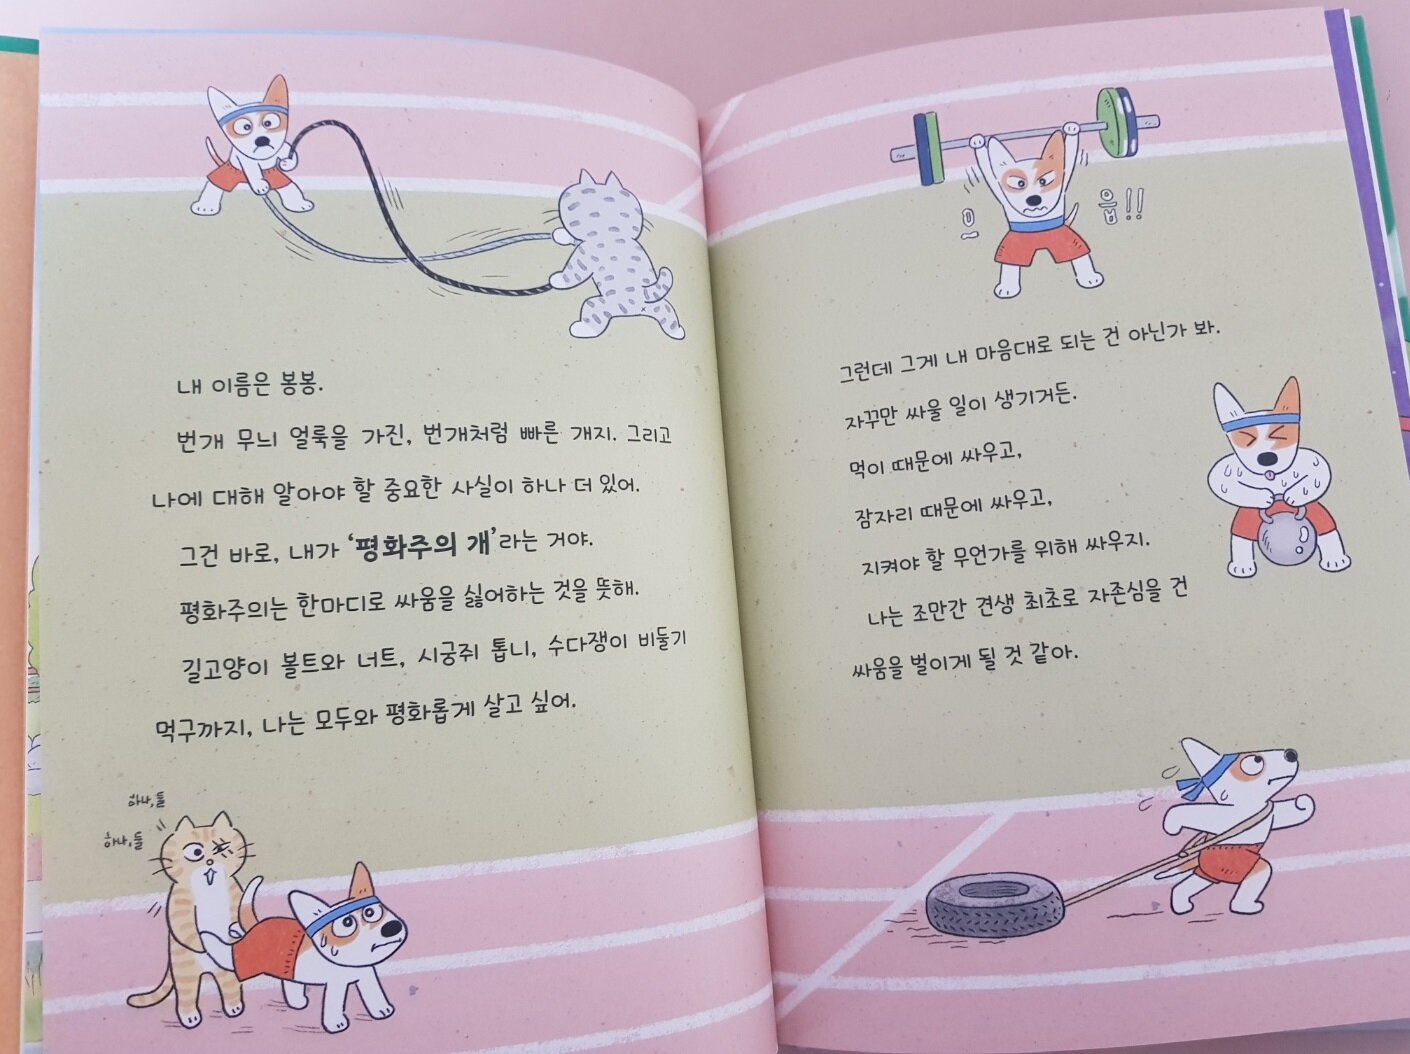 내 이름은 봉봉.
번개 무늬 얼룩을 가진, 번개처럼 빠른 개지. 그리고
나에 대해 알아야 할 중요한 사실이 하나 더 있어.
그건 바로, 내가 ‘평화주의 개’라는 거야.
평화주의는 한마디로 싸움을 싫어하는 것을 뜻해.
길고양이 볼트와 너트, 시궁쥐 톱니, 수다쟁이 비둘기
먹구까지, 나는 모두와 평화롭게 살고 싶어.
하나, 둘
하나, 둘
으 읍!!
그런데 그게 내 마음대로 되는 건 아닌가 봐.
자꾸만 싸울 일이 생기거든.
먹이 때문에 싸우고,
잠자리 때문에 싸우고,
지켜야 할 무언가를 위해 싸우지.
나는 조만간 견생 최초로 자존심을 건
싸움을 벌이게 될 것 같아.